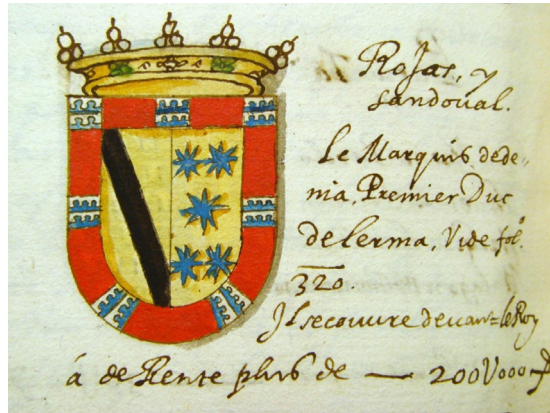 Rojas, y
Sandoval.
Le Marquis de de-
nia, Premier Duc
de Lerma, Vide fol.
320
Il se couure deuant le Roy
á de Rente plus de — 200V000